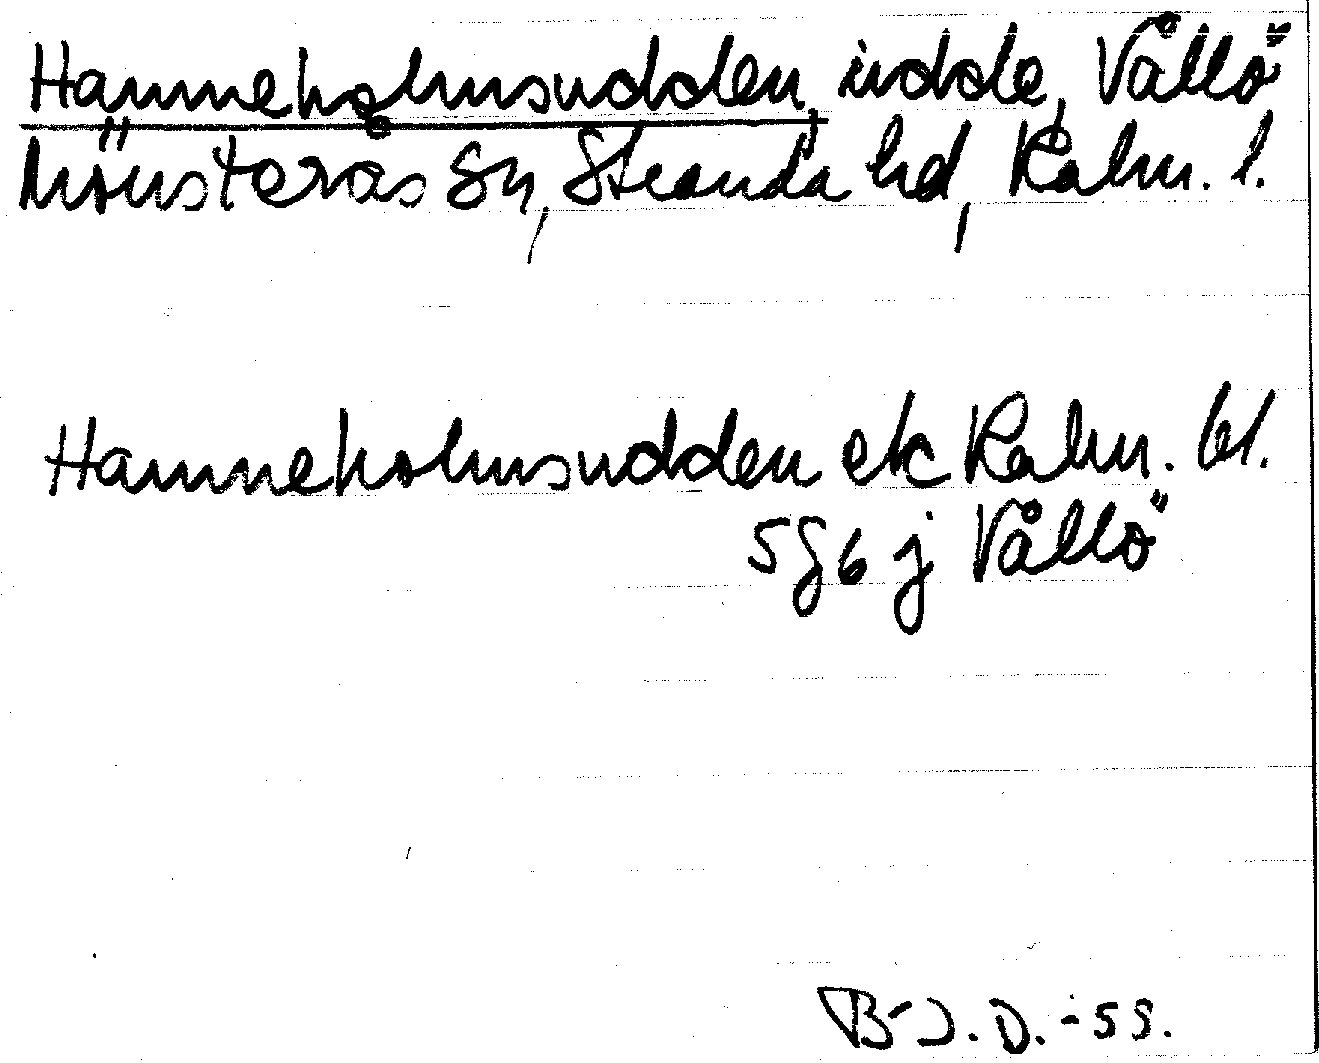 Hamneholmsudden, udde, Vållö
Mönsterås sn, Stranda hd, Kalm. l.
Hamneholmsudden ek Kalm. bl.
5g6j Vållö
B-J.D. -55.